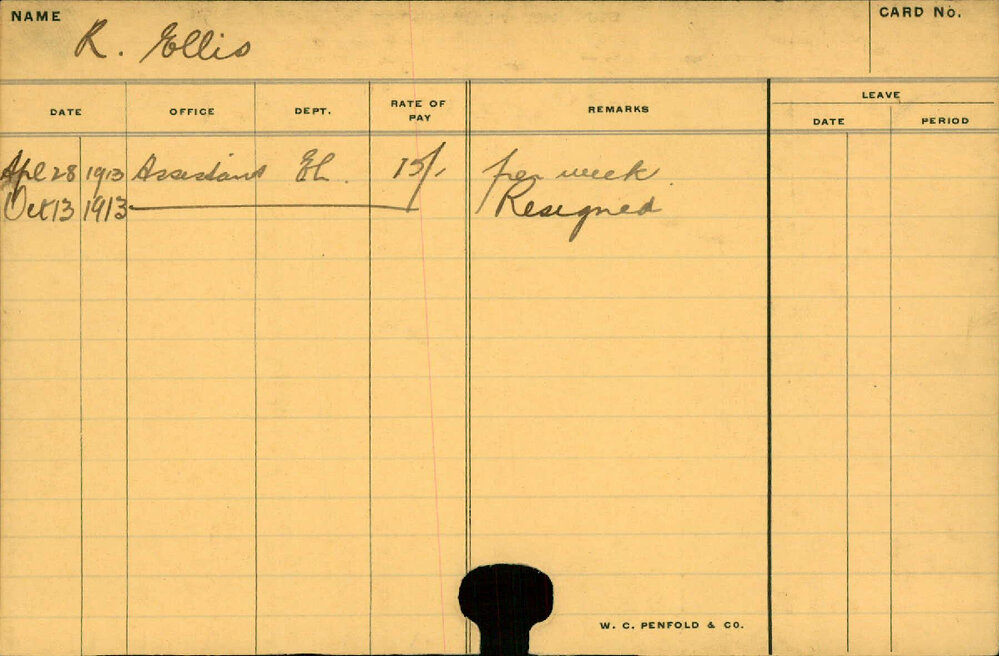 NAME R. Ellis CARD No.
DATE OFFICE DEPT. RATE OF PAY REMARKS LEAVE
DATE PERIOD
Apl 28 1913 Assistant El. 15/- per week
Oct 13 1913 Resigned
W. C. PENFOLD & CO.